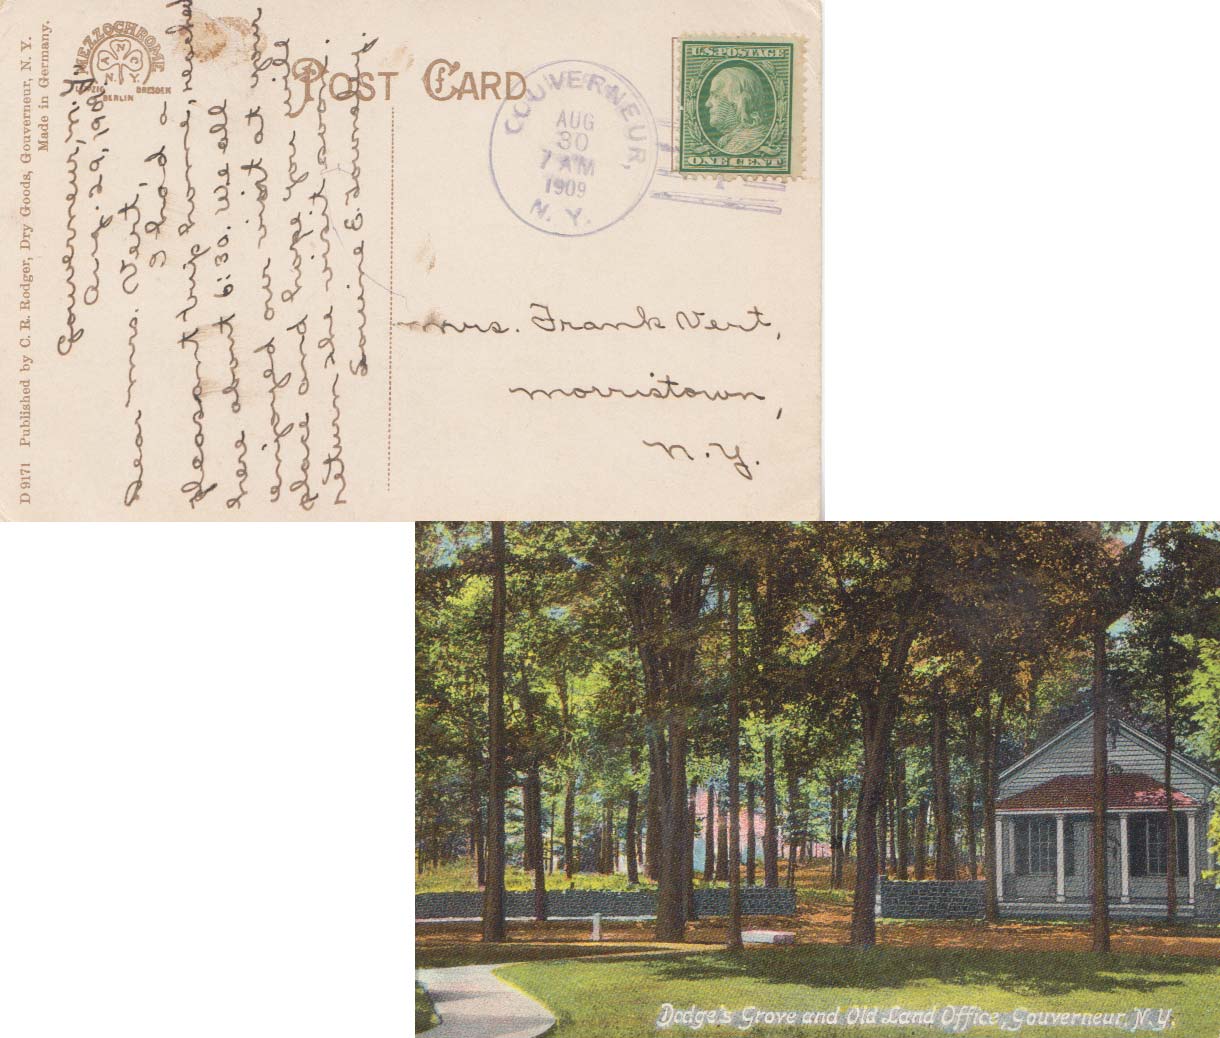 D 9171 Published by C. R. Rodger, Dry Goods, Gouverneur, N. Y.
Made in Germany.
MEZZOCHROME
A N C
N.Y.
LEIPZIG DRESDEN
BERLIN
POST CARD
GOUVERNEUR,
AUG
30
7 AM
1909
N. Y.
U.S. POSTAGE
ONE CENT
Gouverneur, N.Y.
Aug. 29, 1909.
Dear Mrs. Vert,
I had a
pleasant trip home, reached
here about 6:30. We all
enjoyed our visit at your
place and hope you will
return the visit soon.
Mrs. Frank Vert,
Morristown,
N.Y.
Dodge's Grove and Old Land Office, Gouverneur, N.Y.